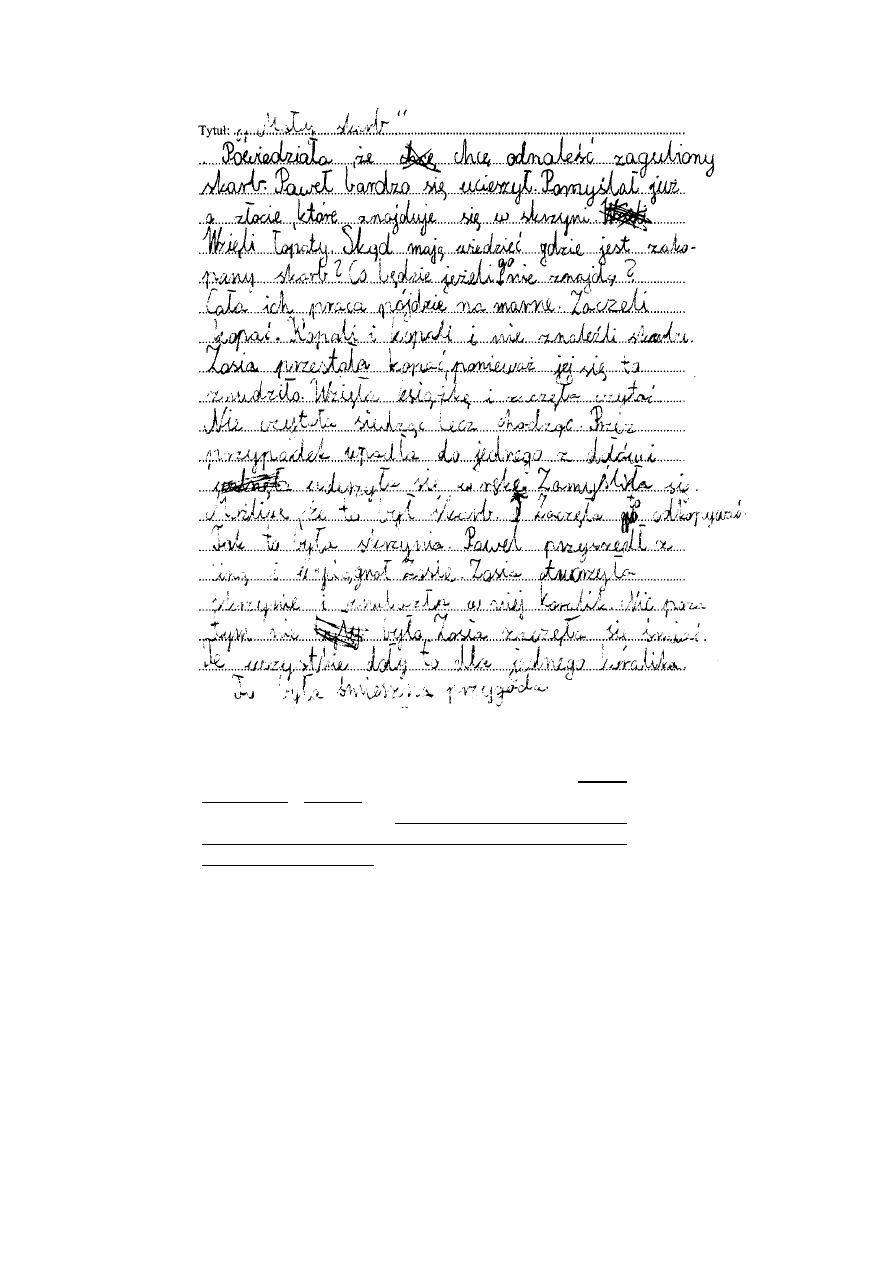 Tytuł: „Mały skarb"
Powiedziała że chcę odnaleść zagubiony
skarb. Paweł bardzo się ucieszył. Pomyślał już
o złocie, które znajduje się w skrzyni.
Wzięli łopaty. Skąd mają wiedzieć gdzie jest zako-
pany skarb? Co będzie jeżeli go nie znajdą?
Cała ich praca pójdzie na marne. Zaczeli
kopać. Kopali i kopali i nie znaleźli skarbu.
Zosia przestała kopać, ponieważ jej się to
znudziło. Wzięła książkę i zaczęła czytać
Nie czytała siedząc lecz chodząc. Przez
przypadek wpadła do jednego z dołów i
uderzyła się w rękę. Zamyśliła się.
że to był skarb. Zaczęła go odkopywać.
Tak to była skrzynia. Paweł przyszedł z
liną i wyciągnoł Zosie. Zosia otworzyła
skrzynie i zobaczyła w niej koralik. Nic poza
tym nie było. Zosia zaczęła się śmiać.
Te wszystkie doły to dla jednego koralika.
To była śmieszna przygoda